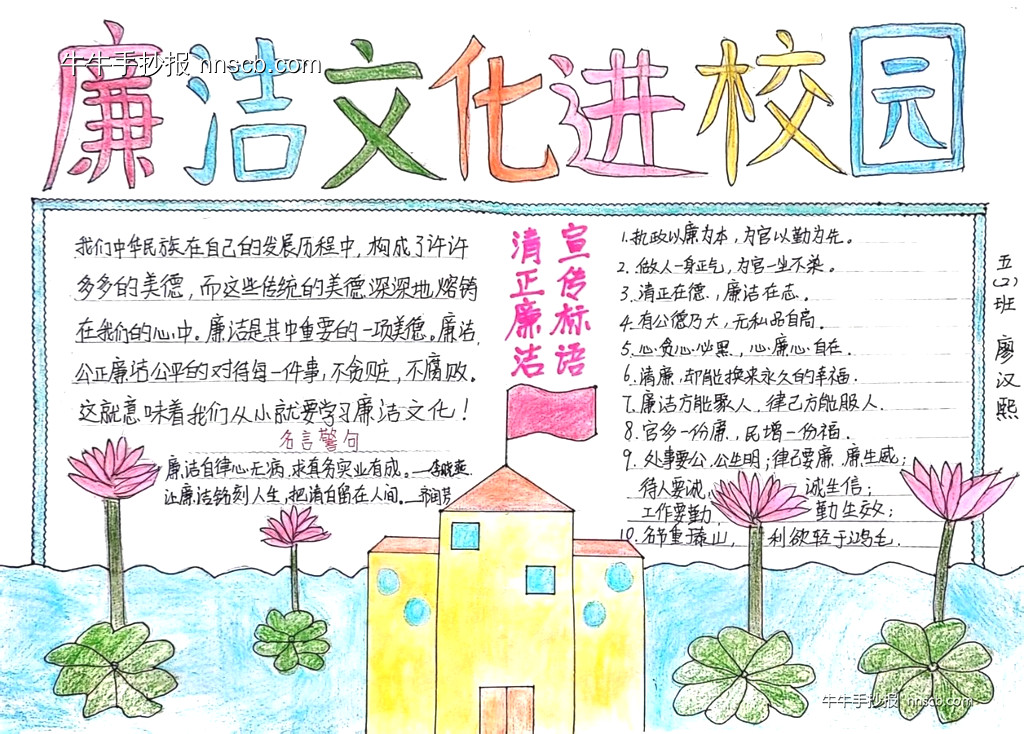 廉洁文化进校园
牛牛手抄报 nnscb.com
我们中华民族在自己的发展历程中，构成了许许
多多的美德，而这些传统的美德深深地熔铸
在我们的心中。廉洁是其中重要的一项美德。廉洁，
公正廉洁公平的对待每一件事，不贪赃，不腐败。
这就意味着我们从小就要学习廉洁文化！
名言警句
廉洁自律心无病，求真务实业有成。——李晓燕
让廉洁铭刻人生，把清白留在人间。
宣传标语
清正廉洁
1.执政以廉为本，为官以勤为先。
2.做人一身正气，为官一尘不染。
3.清正在德，廉洁在志。
4.有公德乃大，无私品自高。
5.心贪心必黑，心廉心自在.
6.清廉，却能换来永久的幸福.
7.廉洁方能聚人，律己方能服人.
8.官多一份廉，民增一份福.
9.处事要公，公生明；律己要廉，廉生威；
待人要诚，诚生信；
工作要勤，勤生效；
10.名节重于泰山，利欲轻于鸿毛.
五(2)班 廖汉熙
牛牛手抄报 nnscb.com